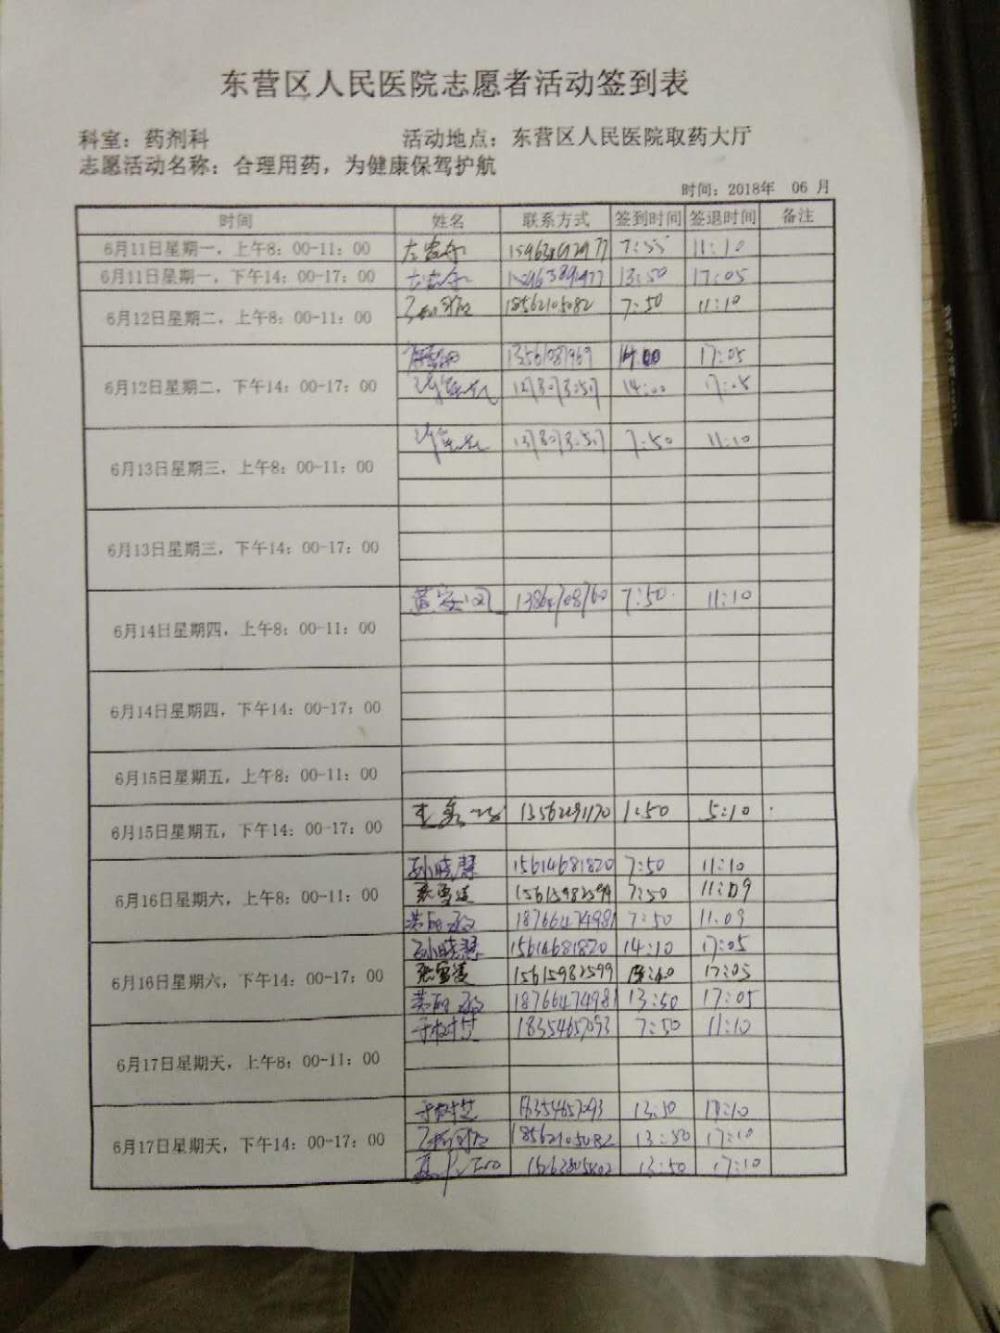 东营区人民医院志愿者活动签到表
科室：药剂科 活动地点：东营区人民医院取药大厅
志愿活动名称：合理用药，为健康保驾护航
时间：2018年 06 月
时间 姓名 联系方式 签到时间 签退时间 备注
6月11日星期一，上午8：00-11：00 7:55 11:10
6月11日星期一，下午14：00-17：00 13:50 17:05
6月12日星期二，上午8：00-11：00 18562105082 7:50 11:10
14:00 17:05
6月12日星期二，下午14：00-17：00 14:00 17:05
7:50 11:10
6月13日星期三，上午8：00-11：00
6月13日星期三，下午14：00-17：00
7:50 11:10
6月14日星期四，上午8：00-11：00
6月14日星期四，下午14：00-17：00
6月15日星期五，上午8：00-11：00
1:50 5:10
6月15日星期五，下午14：00-17：00
孙晓慧 15614681820 7:50 11:10
6月16日星期六，上午8：00-11：00 张雪莲 15615982599 7:50 11:09
18766474981 7:50 11:09
孙晓慧 15614681820 14:10 17:05
6月16日星期六，下午14：00-17：00 张雪莲 15615982599 17:05
18766474981 13:50 17:05
于树芝 18354657093 7:50 11:10
6月17日星期天，上午8：00-11：00
于树芝 18354657093 13:50 17:10
6月17日星期天，下午14：00-17：00 18562105082 13:50 17:10
13:50 17:10